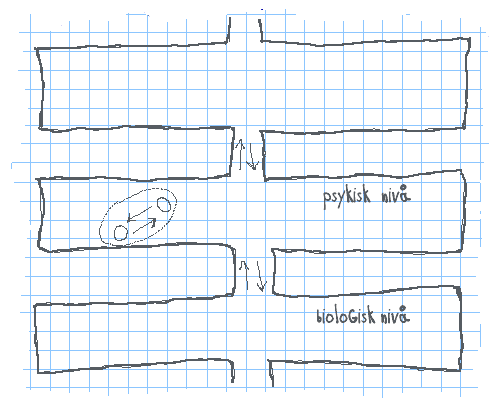 psykisk nivå
biologisk nivå